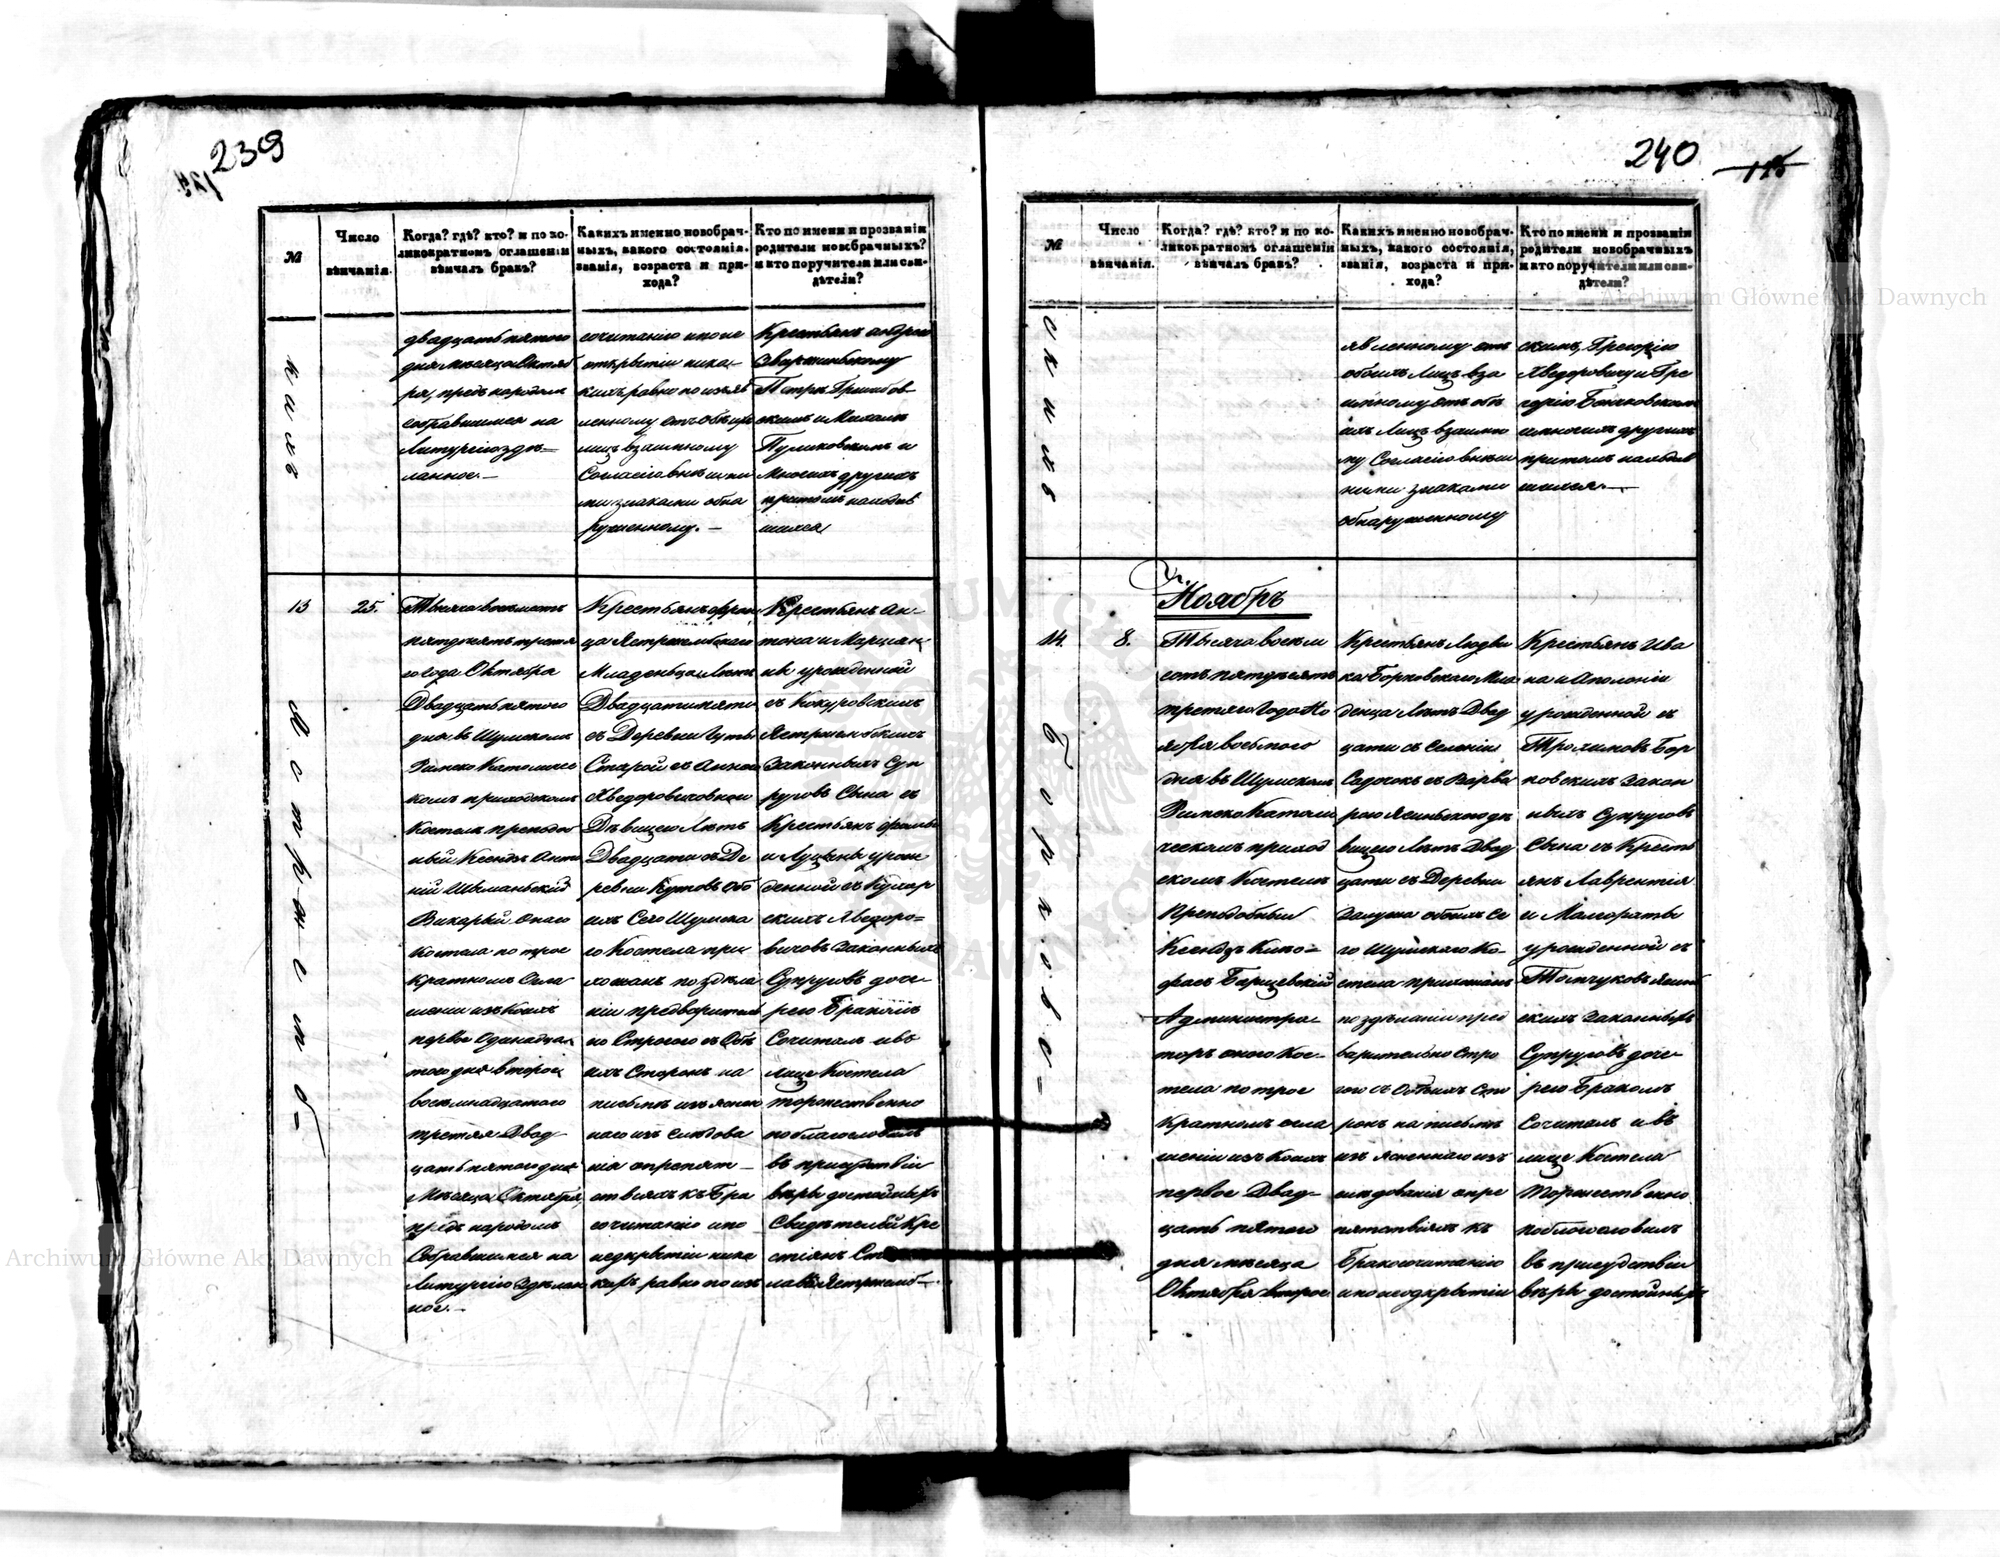 239
240
№
Число
вѣнчанія.
Когда? гдѣ? кто? и по ко-
ликократномъ оглашеніи
вѣнчалъ бракъ?
Какихъ именно новобрач-
ныхъ, какого состоянія,
званія, возраста и при-
хода?
Кто по имени и прозванію
родители новобрачныхъ?
и кто поручители или сви-
дѣтели?
двадцать пятого
дня мѣсяца Октяб
ря, предъ народомъ
собравшимся на
Литургію здѣ-
ланное.-
сочитанію и по не
открытіи ника-
кихъ равно по изъяв
ленному отъ обѣихъ
лицъ взаимному
Согласію внѣшни
ми знаками обна
руженному.-
Крестьянъ Андрею
Петръ Гржибов-
скимъ и Михаломъ
и
Многихъ другихъ
притомъ находив
шихся
13
25.
Тысяча восемсотъ
пятдесятъ третя
го года Октября
Двадцать пятого
дня въ Шумскомъ
Римско Католичес
комъ приходскомъ
Костелѣ преподоб
ный Ксендзъ Анто
ній Шиманьскій
Викарый онаго
Костела по трое
кратномъ Огла
шеніи изъ Коихъ
первое Одинадца
того дня второе
восемнадцатого
третея Двад-
цать пятого дня
Мѣсяца Октября,
предъ народомъ
Собравшимся на
Литургію Здѣлан
ное.-
Крестьянъ Фран
ца Ястржембскаго
Младенца Лѣтъ
Двадцати пяти
съ Деревни Гуты
Старой съ Анною
Хведоровичовною
Дѣвицею Лѣтъ
Двадцати съ Де
ревни Кутовъ Обо
ихъ Сего Шумска
го Костела при
хожанъ по здѣла
ніи предварителъ
но Строгого съ Обѣ
ихъ Сторонъ на
письмѣ изъяснен
наго изъ Слѣдова
нія опрепят-
ствіяхъ къ Бра
косочитанію и по
недкрытіи ника
кихъ равно по изъ
Крестьянъ Ан-
тона и Маріан-
ны урожденной
съ Кокуровскихъ
Ястржембскихъ
Законныхъ Суп
руговъ Сына съ
Крестьянъ
и Луціены урож
денной съ Кухар
скихъ Хведоро=
вичовъ Законныхъ
Супруговъ доче-
рею Бракомъ
Сочиталъ и въ
лице Костела
торжественно
поблагословилъ
въ присудствіи
вѣры достойныхъ
Свидѣтелей Кре
стіянъ
№
Число
вѣнчанія.
Когда? гдѣ? кто? и по ко-
ликократномъ оглашеніи
вѣнчалъ бракъ?
Какихъ именно новобрач-
ныхъ, какого состоянія,
званія, возраста и при-
хода?
Кто по имени и прозванію
родители новобрачныхъ
и кто поручители или сви-
дѣтели?
явленному отъ
обоихъ Лицъ вза
имному отъ обѣ
ихъ Лицъ взаимно
му Согласію внѣш
ними знаками
обнаруженному
скимъ, Грегоріо
Хведоровичу и Гре
горію Бончковскому
и многихъ другихъ
притомъ находив
шихся.-
Ноябрь
14.
8.
Тысяча восем
сотъ пятдесятъ
третяго Года Но
ября восьмого
дня въ Шумскомъ
Римско Католи
ческомъ приход
скомъ Костелѣ
Преподобный
Ксендзъ Нико-
форъ Барщевскій
Администра-
торъ оного Кос-
тела по трое
кратномъ огла
шеніи изъ Коихъ
первое Двад-
цать пятого
дня мѣсяца
Октября второе
Крестьянъ Людви
ка Борковскаго Мла
денца Лѣтъ Двад
цати съ Селенія
Садочокъ съ Варва
рою Ясиньскою дѣ
вицею Лѣтъ Двад
цати съ Деревни
Залужа обоихъ Се
го Шумскаго Ко-
стела прихожанъ
по здѣланіи пред
варительно Стро
гого съ Обѣихъ Сто
ронъ на письмѣ
изъясненнаго изъ
слѣдованія опре
пятствіяхъ къ
Бракосочитанію
и по неодкрытіи
Крестьянъ Ива
на и Аполоніи
урожденной съ
Трохимовъ Бор
ковскихъ Закон
ныхъ Супруговъ
Сына съ Кресть
янъ Лаврентія
и Малгораты
урожденной съ
Томчуковъ Ясинь
скихъ Законныхъ
Супруговъ доче-
рею Бракомъ
Сочиталъ и въ
лице Костела
Торжественно
поблогословилъ
въ присудствіи
вѣры достойныхъ
Archiwum Główne Akt Dawnych
Archiwum Główne Akt Dawnych